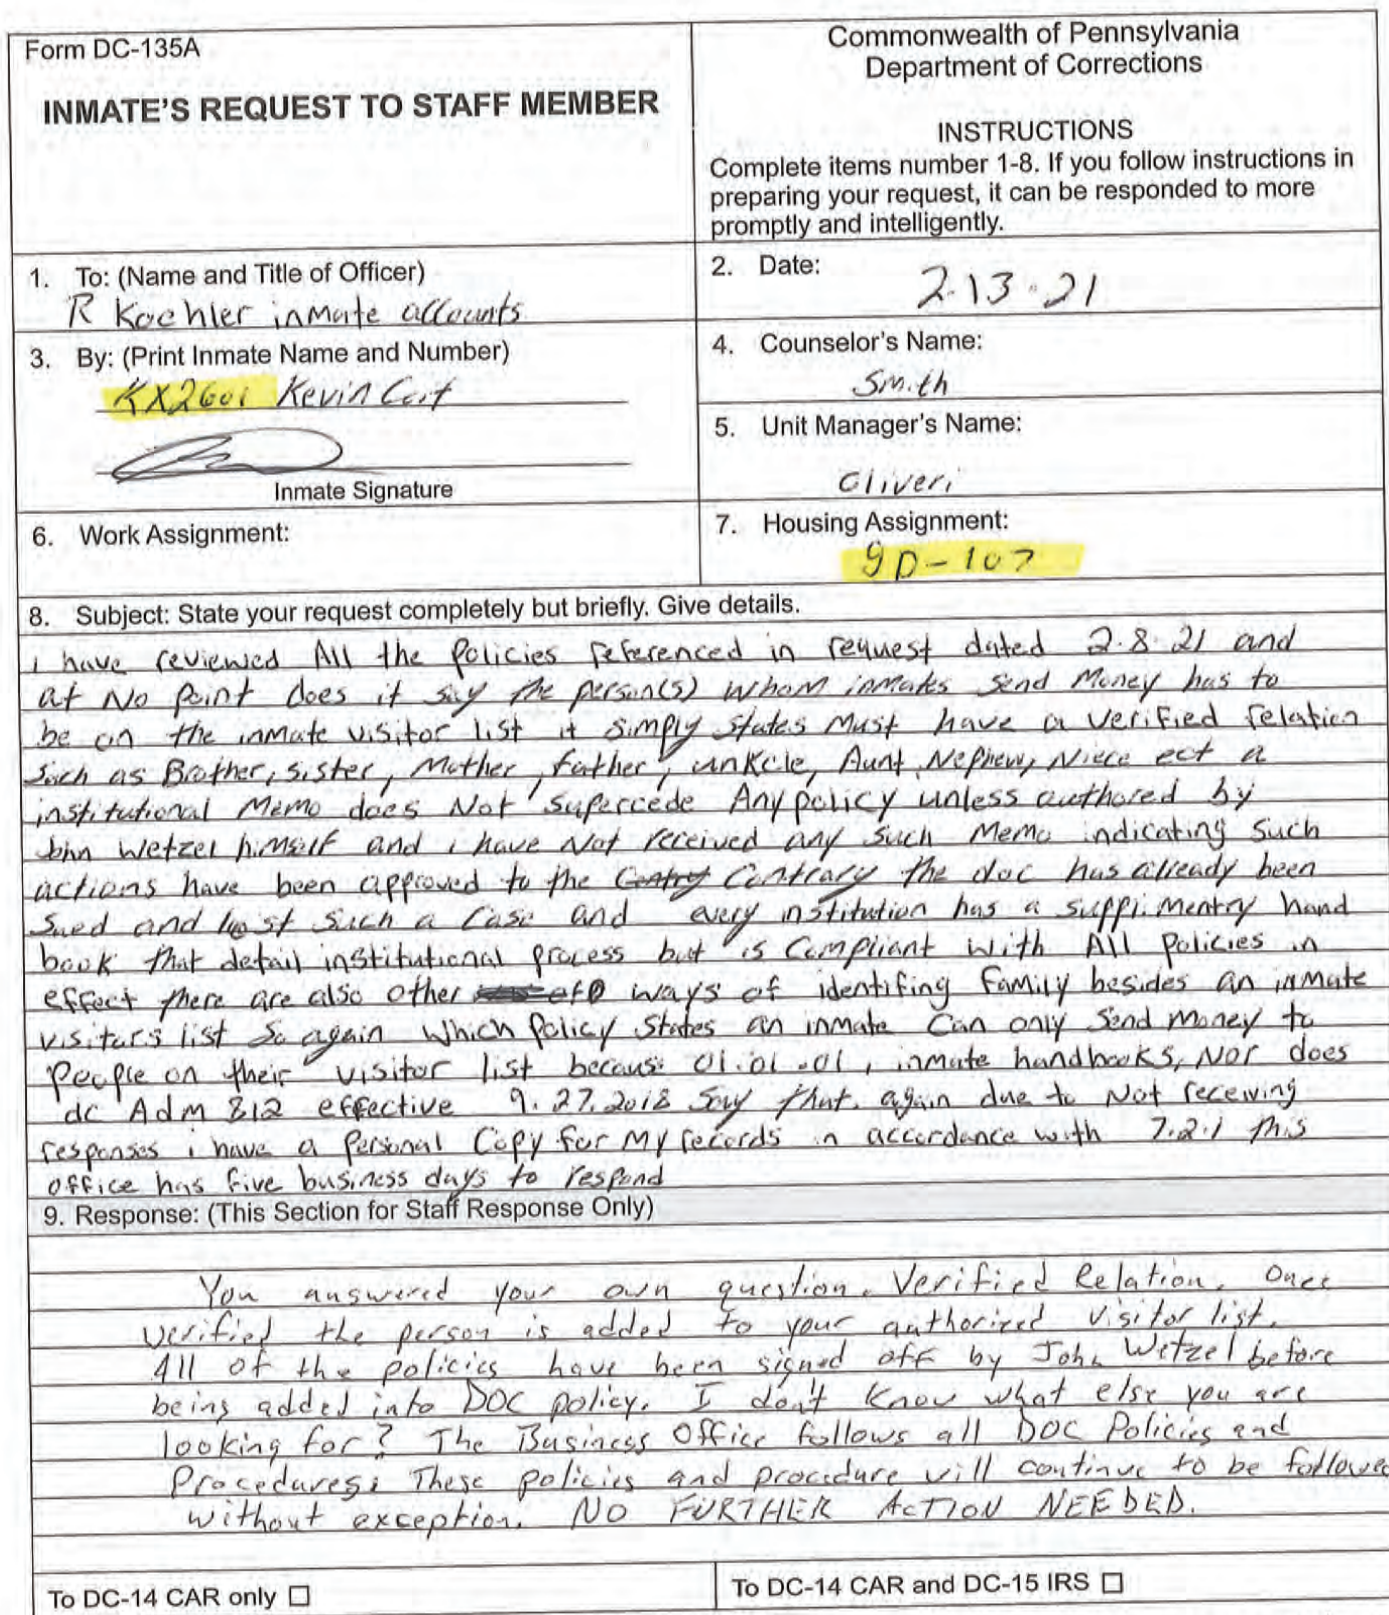 Form DC-135A
INMATE'S REQUEST TO STAFF MEMBER
Commonwealth of Pennsylvania
Department of Corrections
INSTRUCTIONS
Complete items number 1-8. If you follow instructions in
preparing your request, it can be responded to more
promptly and intelligently.
1. To: (Name and Title of Officer)
R Koehler inmate accounts
2. Date:
2.13.21
3. By: (Print Inmate Name and Number)
KX2601 Kevin
Inmate Signature
4. Counselor's Name:
Smith
5. Unit Manager's Name:
Oliveri
6. Work Assignment:
7. Housing Assignment:
9D-107
8. Subject: State your request completely but briefly. Give details.
i have reviewed All the Policies referenced in request dated 2.8.21 and
at No Point does it say the person(s) Whom inmates Send Money has to
be on the inmate visitor list it simply states Must have a verified relation
Such as Brother, sister, Mother, father, unKcle, Aunt, Nephew, Niece ect a
institutional Memo does Not supercede Any policy unless authored by
John Wetzel himself and i have Not received any such Memo indicating Such
actions have been approved to the Contrary the doc has already been
Sued and lost Such a Case and every institution has a supplimentry hand
book that detail institutional process but is Compliant with All Policies in
effect there are also other ways of identifing Family besides an inmate
visitors list So again Which Policy States an inmate Can only Send Money to
People on their visitor list because 01.01.01, inmate handbooks, Nor does
dc Adm 812 effective 9.27.2018 Say that. again due to Not receiving
responses i have a Personal Copy for My records in accordance with 7.2.1 this
office has five business days to respond
9. Response: (This Section for Staff Response Only)
You answered your own question. Verified Relation. Once
verified the person is added to your authorized visitor list.
All of the policies have been signed off by John Wetzel before
being added into DOC policy. I don't know what else you are
looking for? The Business Office follows all DOC Policies and
Procedures; These policies and procedure will continue to be followed
without exception. NO FURTHER ACTION NEEDED.
To DC-14 CAR only ☐
To DC-14 CAR and DC-15 IRS ☐